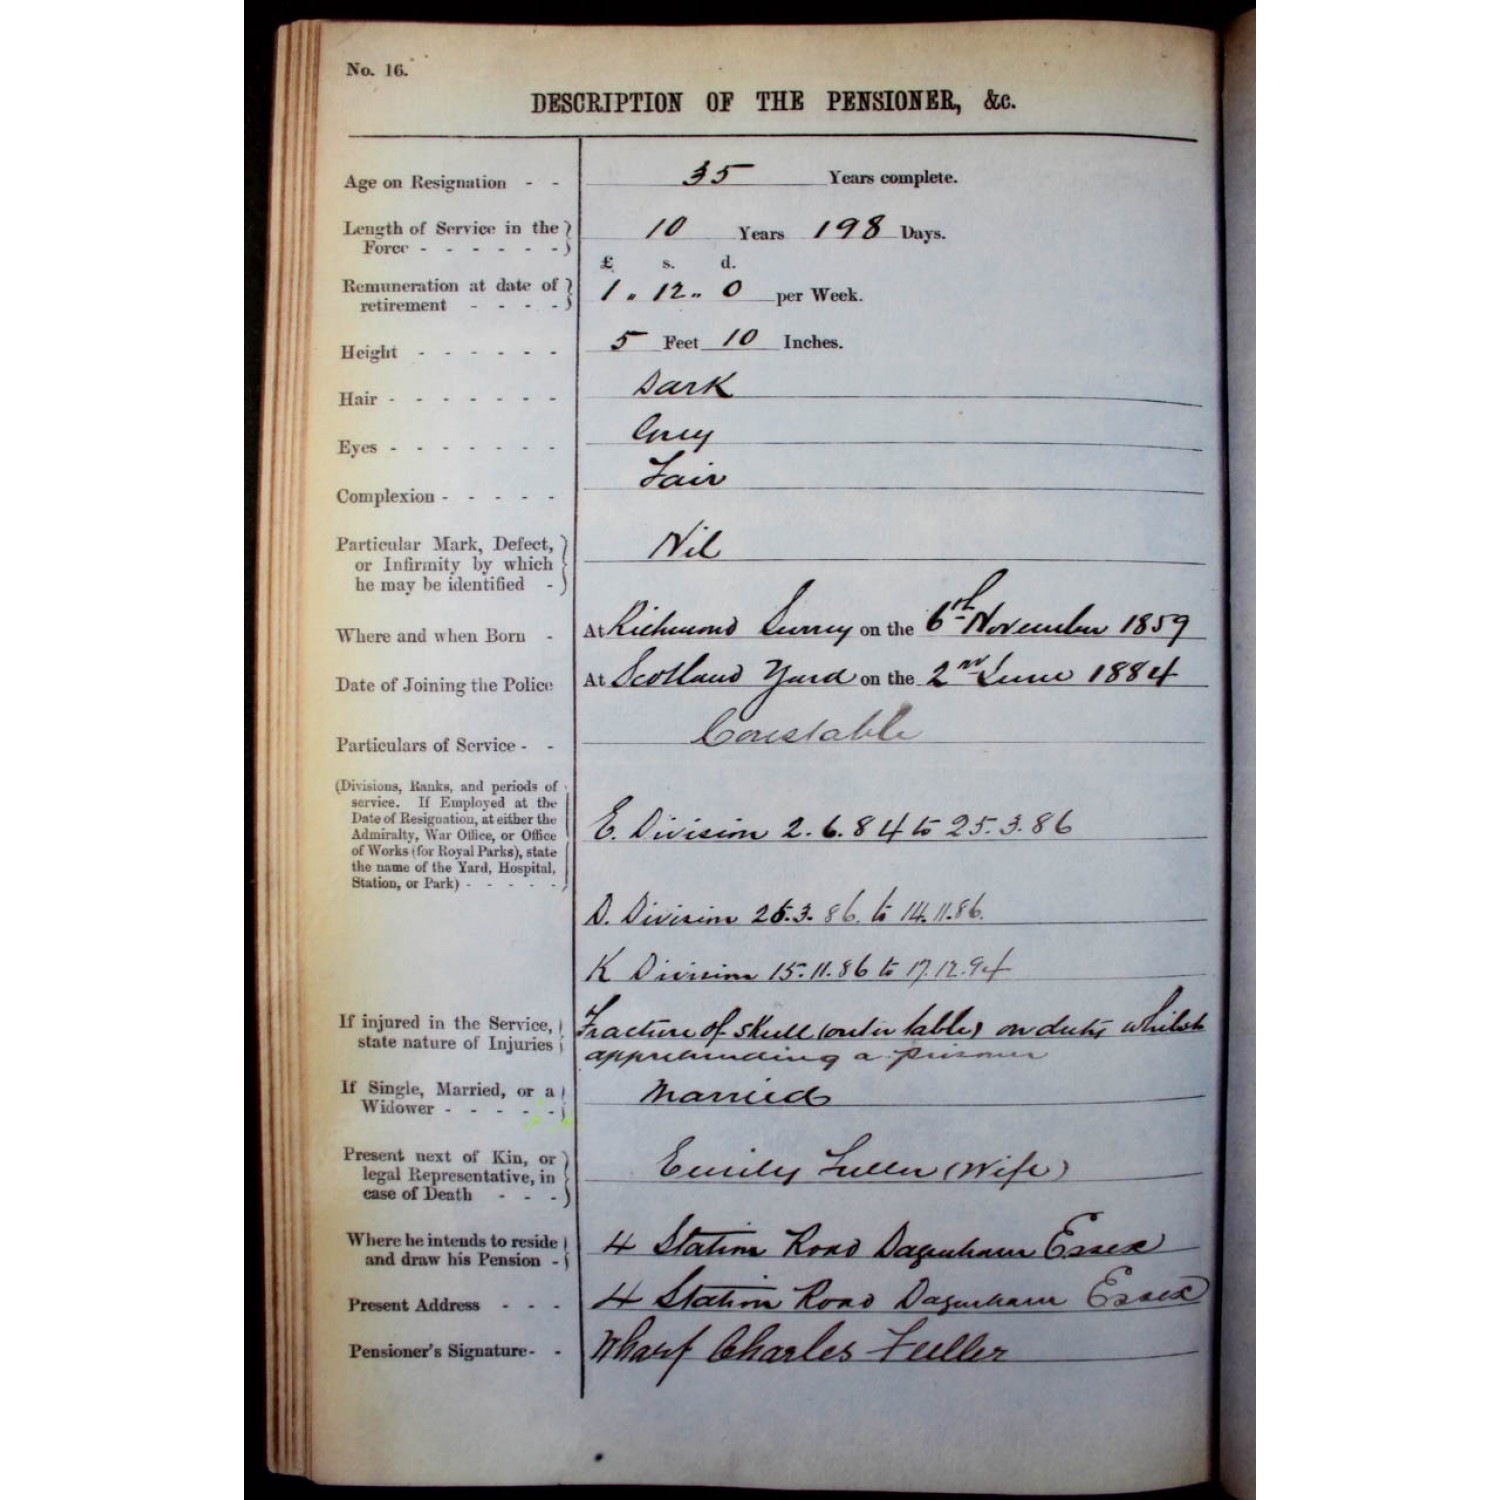 No. 16.
DESCRIPTION OF THE PENSIONER, &c.
Age on Resignation - - 35 Years complete.
Length of Service in the
Force - - - - - - 10 Years 198 Days.
£ s. d.
Remuneration at date of
retirement - - - - 1 " 12 " 0 per Week.
Height - - - - - - 5 Feet 10 Inches.
Hair - - - - - - - Dark
Eyes - - - - - - - Grey
Complexion - - - - - Fair
Particular Mark, Defect,
or Infirmity by which
he may be identified - Nil
Where and when Born - At Richmond Surrey on the 6th November 1859
Date of Joining the Police At Scotland Yard on the 2nd June 1884
Particulars of Service - - Constable
(Divisions, Ranks, and periods of
service. If Employed at the
Date of Resignation, at either the
Admiralty, War Office, or Office
of Works (for Royal Parks), state
the name of the Yard, Hospital,
Station, or Park) - - - - -
E. Division 2.6.84 to 25.3.86
D. Division 25.3.86. to 14.11.86.
K Division 15.11.86 to 17.12.94
If injured in the Service,
state nature of Injuries
Fracture of skull (outer table) on duty whilst
apprehending a prisoner
If Single, Married, or a
Widower - - - - - Married
Present next of Kin, or
legal Representative, in
case of Death - - - Emily Fuller (Wife)
Where he intends to reside
and draw his Pension - 4 Station Road Dagenham Essex
Present Address - - - 4 Station Road Dagenham Essex
Pensioner's Signature - - Wharf Charles Fuller